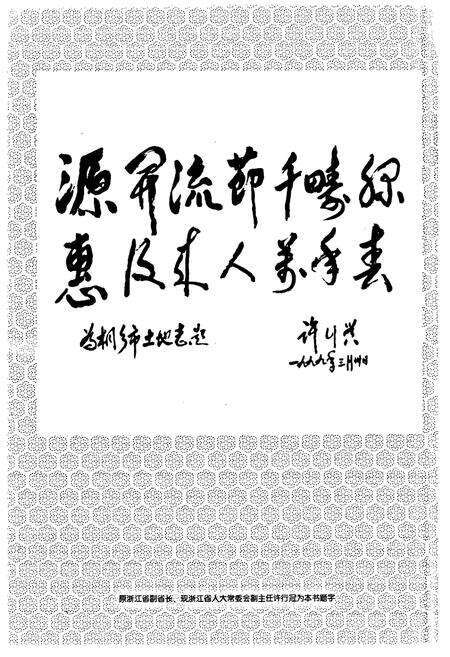 源开流节千畴绿
惠及来人万年春
为桐乡市土地志题
许行
一九九九年三月廿四日
原浙江省副省长、现浙江省人大常委会副主任许行冠为本书题字